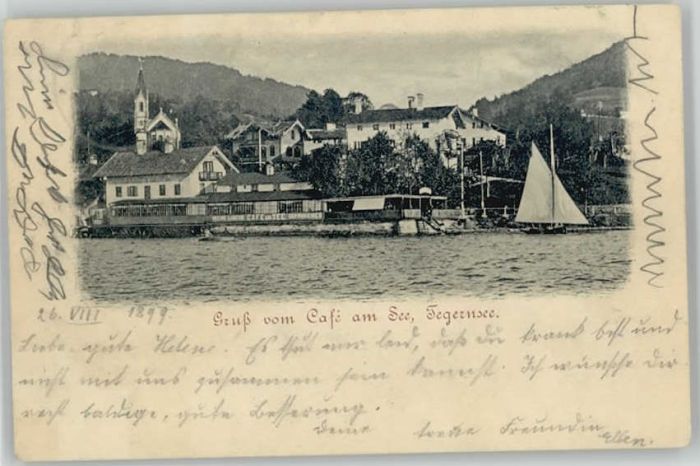 26. VIII 1899.
Gruß vom Café am See, Tegernsee.
Liebe gute Helene. Es thut mir leid, daß du krank bist und
nicht mit uns zusammen sein kannst. Ich wünsche dir
recht baldige, gute Besserung.
Deine treue Freundin
Ellen.